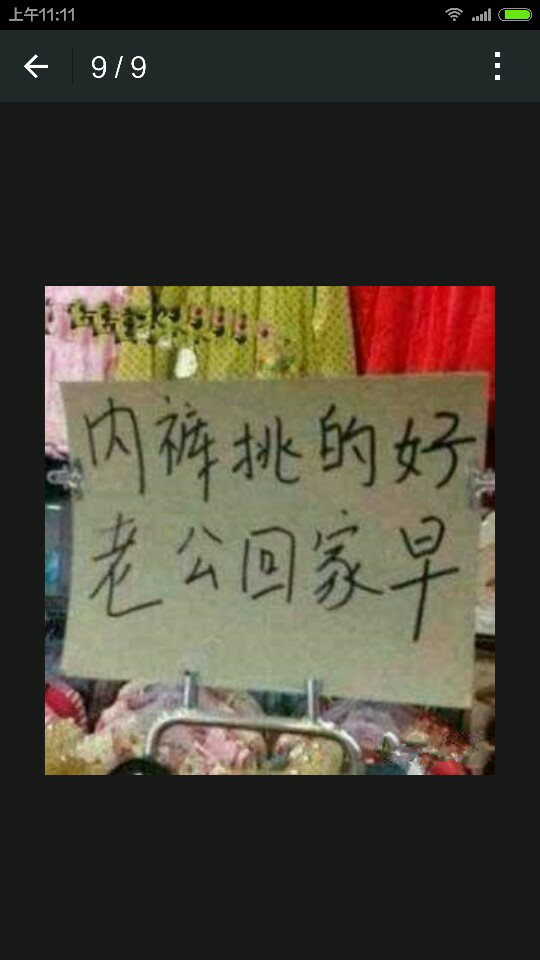 上午11:11
9 / 9
内裤挑的好
老公回家早